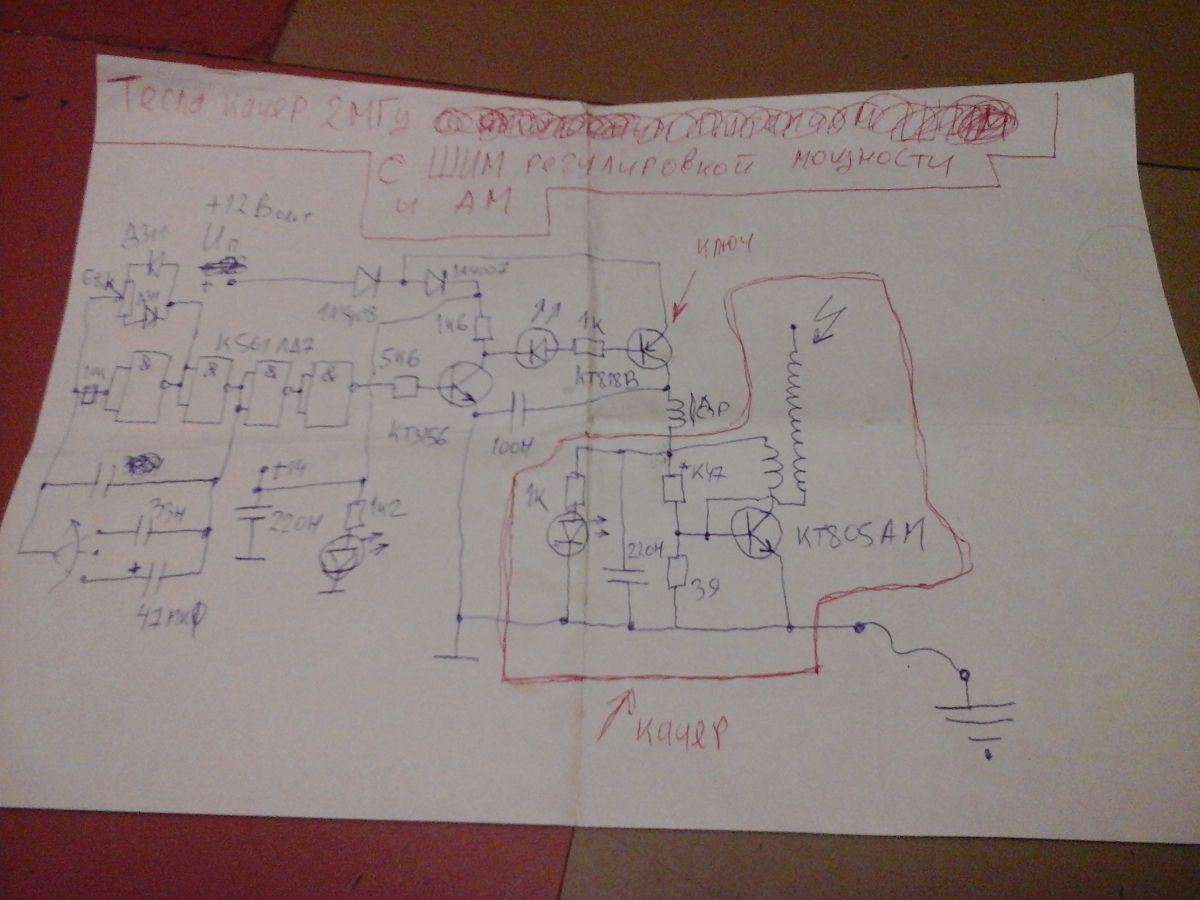 Тесла качер 2 МГц
с ШИМ регулировкой мощности
и АМ
+12 Вольт
Uп
Д311
68к
Д311
+
1N4007
КЛЮЧ
1к6
1к
К561ЛА7
&
&
&
&
5к6
КТ818В
КТ3156
100н
Др
+14
33н
220н
1к2
1к
*К47
220н
39
КТ805АМ
+
47мкф
Качер